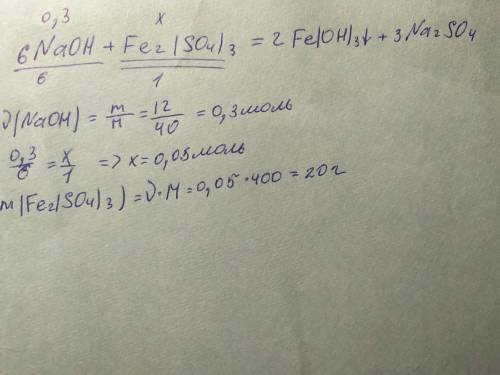 0,3 x
6NaOH + Fe₂(SO₄)₃ = 2Fe(OH)₃↓ + 3Na₂SO₄
6 1
ν(NaOH) = m/M = 12/40 = 0,3 моль
0,3/6 = x/1 => x = 0,05 моль
m(Fe₂(SO₄)₃) = ν·M = 0,05·400 = 20 г